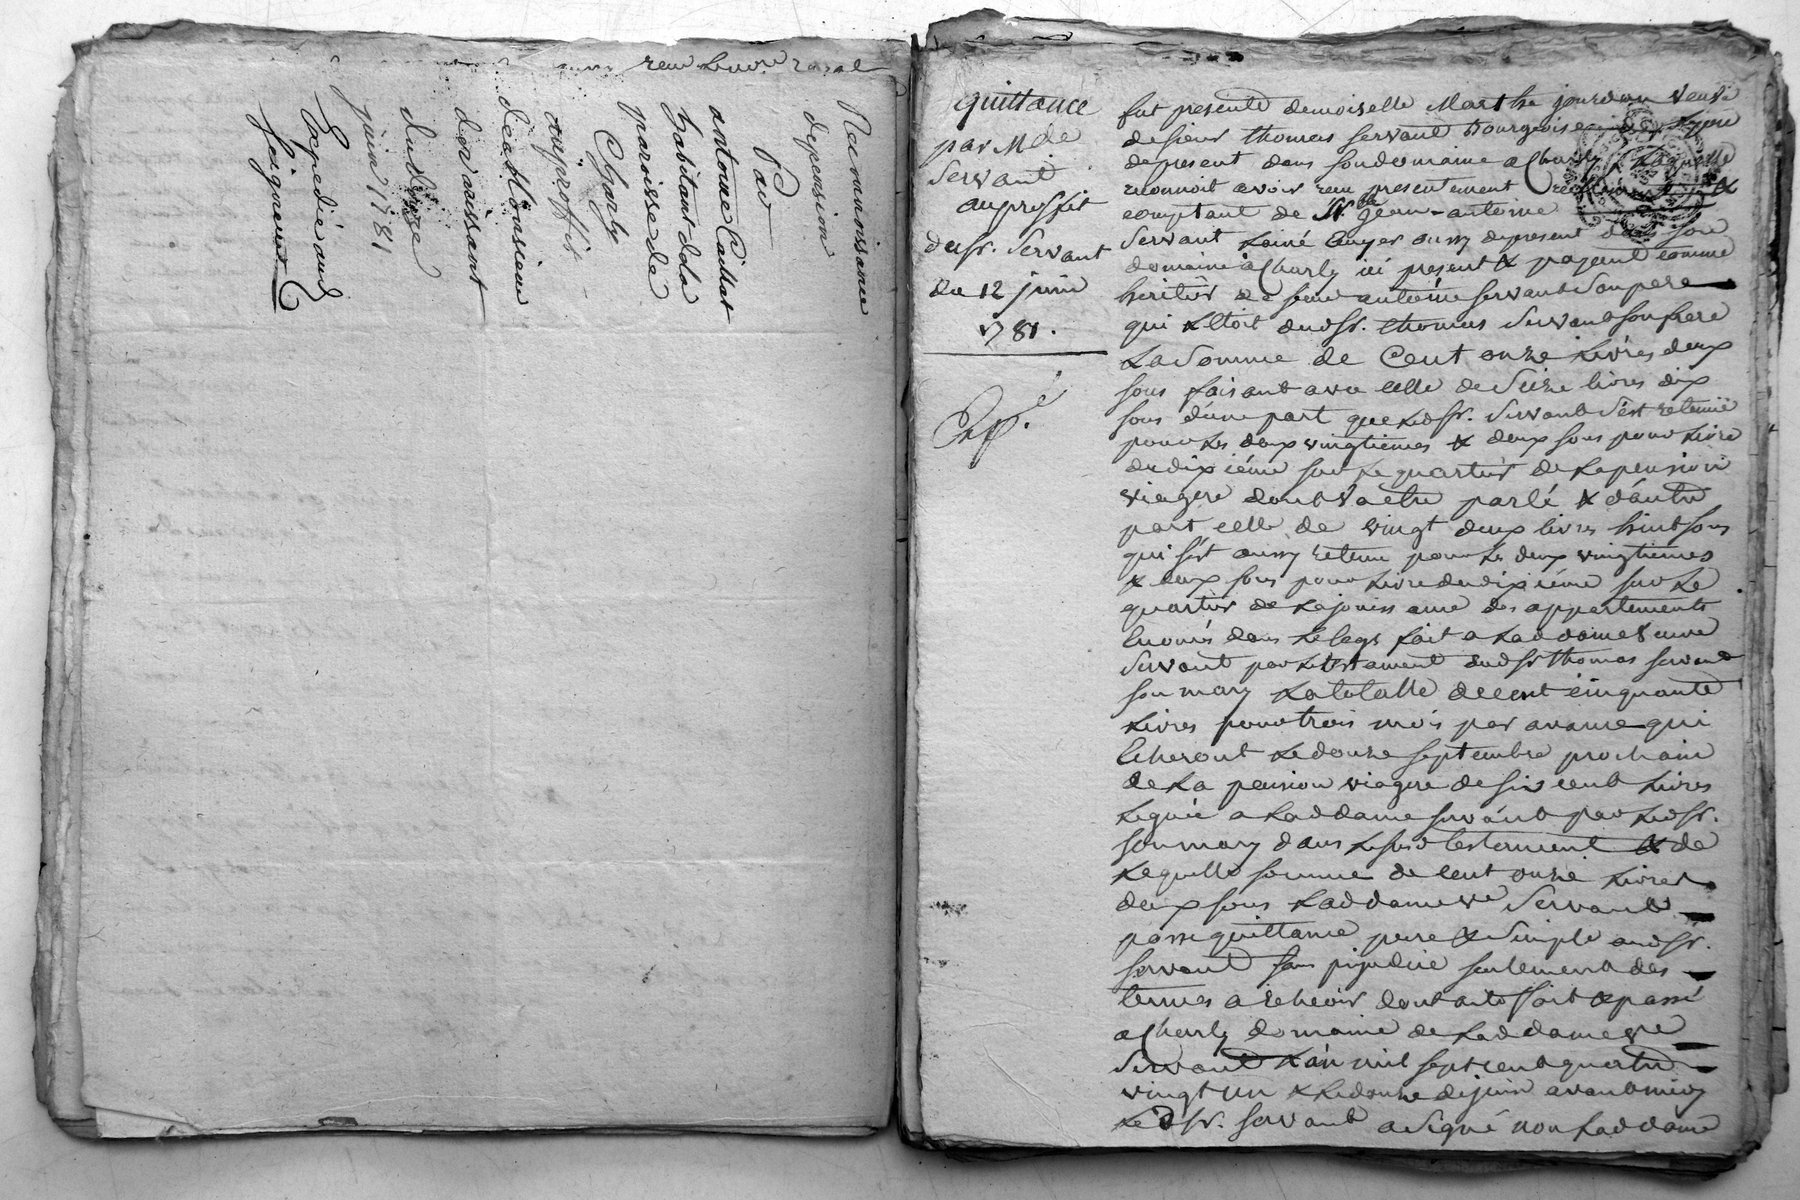 Reconnaissance
depension
Par
antoine Caillat
habitant dela
paroisse de
Charly
auproffit
deablonsieur
dervaissant
du
juin 1781
Expedié aud
seigneur
quittance
par Mde
Servant
auproffit
dusr. Servant
du 12 juin
1781.
Exp.é
fut presente demoiselle Marthe jourdan veuve
desieur thomas servant bourgeois
depresent dans sondomaine a Charly Laquelle
reconnoit avoir recu presentement
comptant de Sr. jean-antoine
Servant Lainé aussy depresent dans son
domaine a Charly ici present & payant comme
heritier de feu antoine servant Sonpere
qui Letoit dudsr. thomas Servant son frere
La Somme de Cent onze Livres deux
sous faisant avec celle de Seize livres dix
sous d'une part que Ledsr. Servant s'est retenüe
pour Les deux vingtiemes & deux sous pour Livre
du dixiéme sur Le quartier de La pension
viagere dont va etre parlé & d'autre
part celle de vingt deux livres huit sous
qui s'est aussy retenu pour Les deux vingtiemes
& deux sous pour Livre du dixiéme sur Le
quartier de La jouissance des appartements
Enoncés dans Le legs fait a Laddame veuve
Servant par Le testament dudsr thomas servant
son mary La totalle de cent cinquante
Livres pour trois mois par avance qui
Echeront Le douze septembre prochain
de La pension viagere de six cent Livres
Leguée a Laddame servant par Ledsr.
son mary dans Le susd testament & de
Laquelle somme de cent onze Livres
deux sous Laddame ve Servant
passe quittance pure & Simple audsr.
servant sans prejudice seulement des
termes a echeoir dont acte fait & passé
a Charly domaine de Laddame ve
Servant L'an mil sept cent quatre
vingt un & Le douze de juin avant midy
Ledsr. servant a signé non Laddame